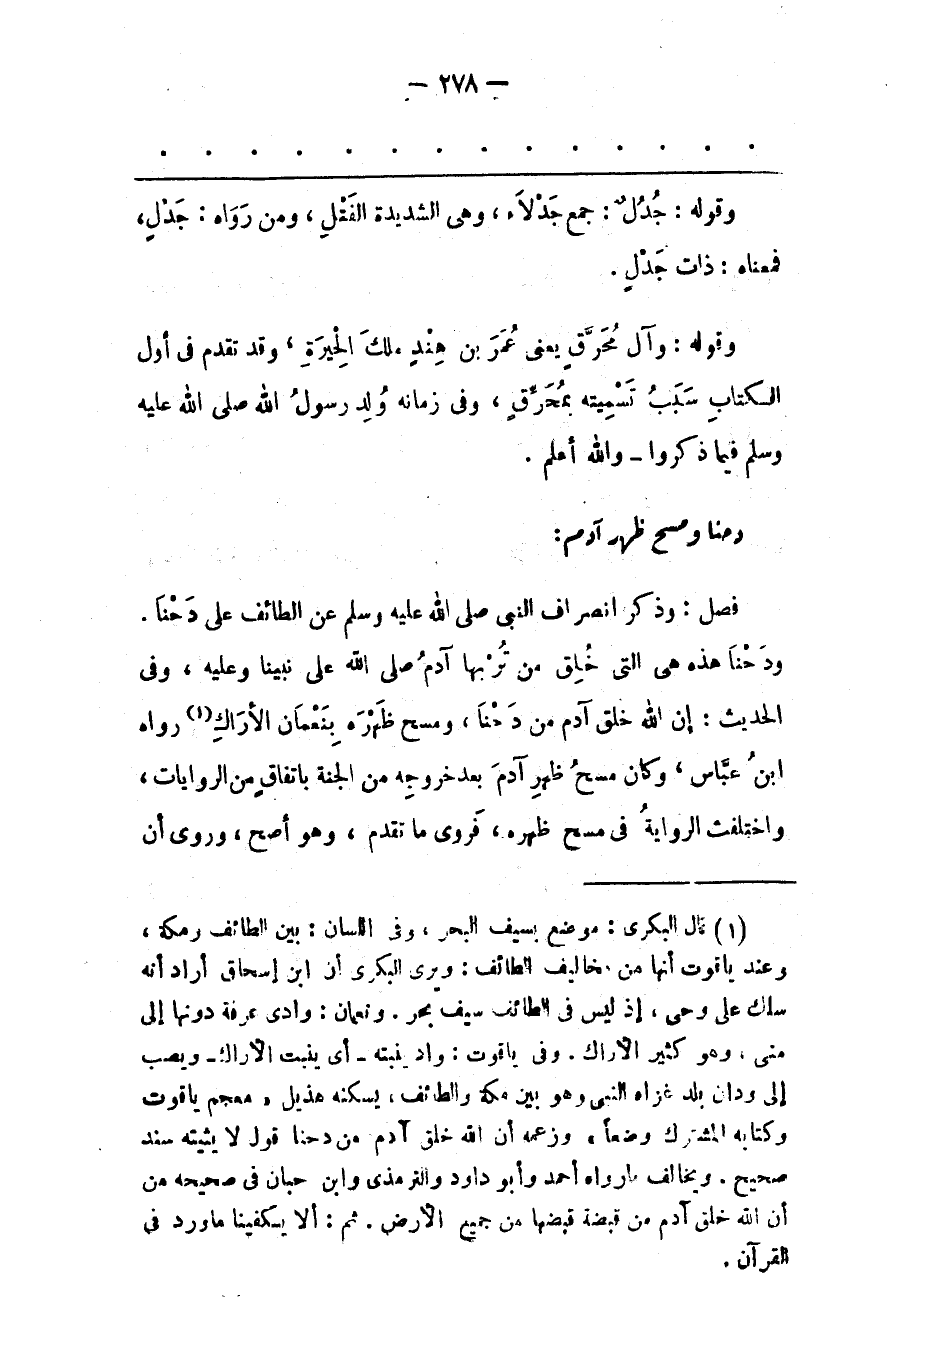 — ٢٧٨ —
. . . . . . . . . . . . . .
وقوله : جُدُلٌ : جمع جَدْلاَء ، وهى الشديدة الفَتْلِ ، ومن رَوَاه : جَدْلٍ،
فمعناه : ذات جَدْلٍ .
وقوله : وآل مُحَرَّقٍ يعنى عُمَرَ بن هِنْدٍ ملكَ الِحْيرَةِ ، وقد تقدم فى أول
الكتابِ سَبَبُ تَسْمِيته بمُحَرِّقٍ ، وفى زمانه وُلِد رسولُ الله صلى الله عليه
وسلم فيما ذكروا ـ والله أعلم .
دحنا ومسح ظهر آدم :
فصل : وذكر انصراف النبى صلى الله عليه وسلم عن الطائف على دَحْنَا .
ودَحْنَا هذه هى التى خُلِق من تُرْبها آدمُ صلى الله على نبينا وعليه ، وفى
الحديث : إن الله خلق آدم من دَحْنَا ، ومسح ظَهْرَه بِنَعْمَان الأرَاكِ(١) رواه
ابنُ عبَّاس ، وكان مسحُ ظهرِ آدمَ بعد خروجِه من الجنة باتفاقٍ من الروايات ،
واختلفت الروايةُ فى مسح ظهره ، فَروى ما تقدم ، وهو أصح ، وروى أن
(١) قال البكرى : موضع بسيف البحر ، وفى اللسان : بين الطائف ومكة ،
وعند ياقوت أنها من مخاليف الطائف : ويرى البكرى أن ابن إسحاق أراد أنه
سلك على وحى ، إذ ليس فى الطائف سيف بحر . ونعمان : وادى عرفة دونها إلى
منى ، وهو كثير الأراك . وفى ياقوت : واد ينبته ـ أى ينبت الأراك ـ ويصب
إلى ودان بلد غزاه النبى وهو بين مكة والطائف ، يسكنه هذيل . معجم ياقوت
وكتابه المشترك وضعاً ، وزعمه أن الله خلق آدم من دحنا قول لا يثبته سند
صحيح . ويخالف مارواه أحمد وأبو داود والترمذى وابن حبان فى صحيحه من
أن الله خلق آدم من قبضة قبضها من جميع الأرض . ثم : ألا يكفينا ماورد فى
القرآن .